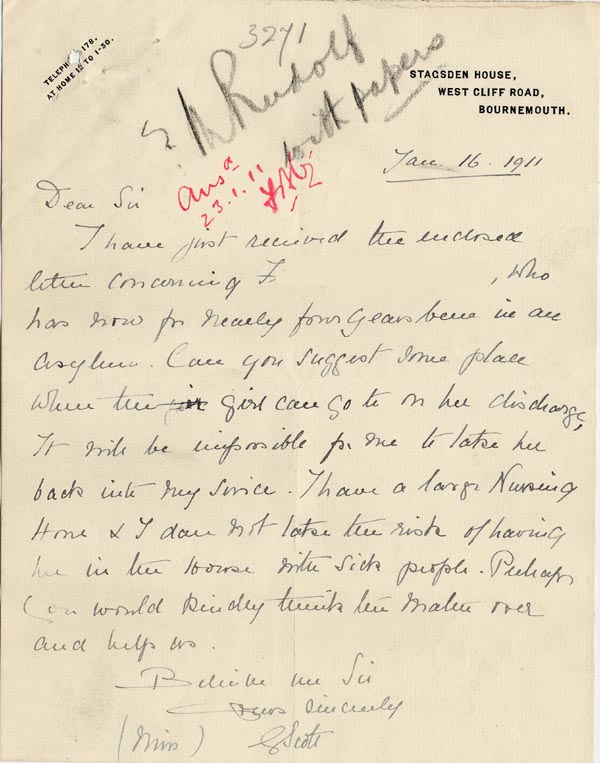 3271
E M Rudolf
with papers
TELEPH 178.
AT HOME 12 TO 1-30.
STAGSDEN HOUSE,
WEST CLIFF ROAD,
BOURNEMOUTH.
Jan. 16. 1911
Ansd
23.1.11
Dear Sir
I have just received the enclosed
letter concerning F , who
has now for nearly four years been in an
asylum. Can you suggest some place
where the girl can go to on her discharge,
It will be impossible for me to take her
back into my service. I have a large Nursing
Home & I dare not take the risk of having
her in the House with sick people. Perhaps
you would kindly think the matter over
and help us.
Believe me Sir
Yours sincerely
(Miss) G Scott